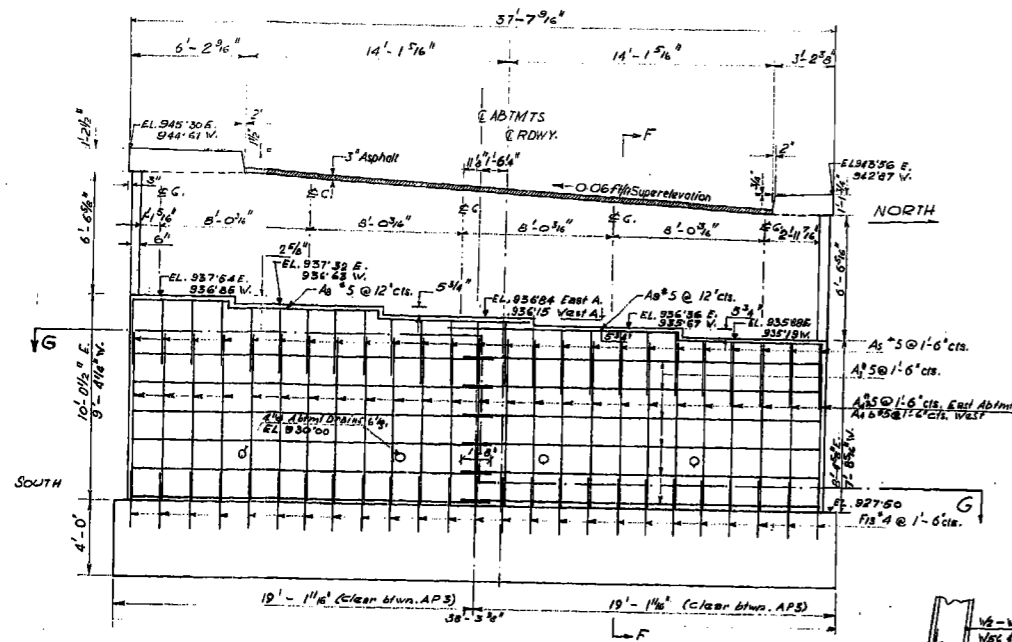 37'-7 9/16"
6'-2 9/16"
14'-1 5/16"
14'-1 5/16"
3'-2 3/8"
1'-2 1/2"
EL. 945.30 E.
944.61 W.
2"
1 1/2"
3" Asphalt
℄ ABTMTS
℄ RDWY.
F
11 1/8"
1'-6 1/4"
0.06 ft/ft Superelevation
2"
3/4"
EL 943.56 E
942.87 W.
NORTH
3"
℄ G.
℄ G.
℄ G.
℄ G.
℄ G.
8'-0 3/16"
8'-0 3/16"
8'-0 3/16"
8'-0 3/16"
2'-11 7/16"
6'-6 5/16"
6"
2 5/8"
EL. 937.54 E.
936.86 W.
EL. 937.32 E.
936.63 W.
A8 #5 @ 12" cts.
5 3/4"
EL. 936.84 East A.
936.15 West A.
A8 #5 @ 12" cts.
EL. 936.36 E.
935.67 W.
5 3/4"
5 3/4"
EL. 935.88 E
935.19 W.
G
10'-0 1/2" E.
9'-4 1/4" W.
#5 @ 1'-6" cts.
#5 @ 1'-6" cts.
#5 @ 1'-6" cts. East Abtmt
#5 @ 1'-6" cts. West
4"ø Abtmt Drains
EL 930.00
1'-8"
SOUTH
G
EL. 927.50
#4 @ 1'-6" cts.
4'-0"
19'-1 11/16" (Clear btwn. AP3)
19'-1 11/16" (clear btwn. AP3)
38'-3 3/8"
F